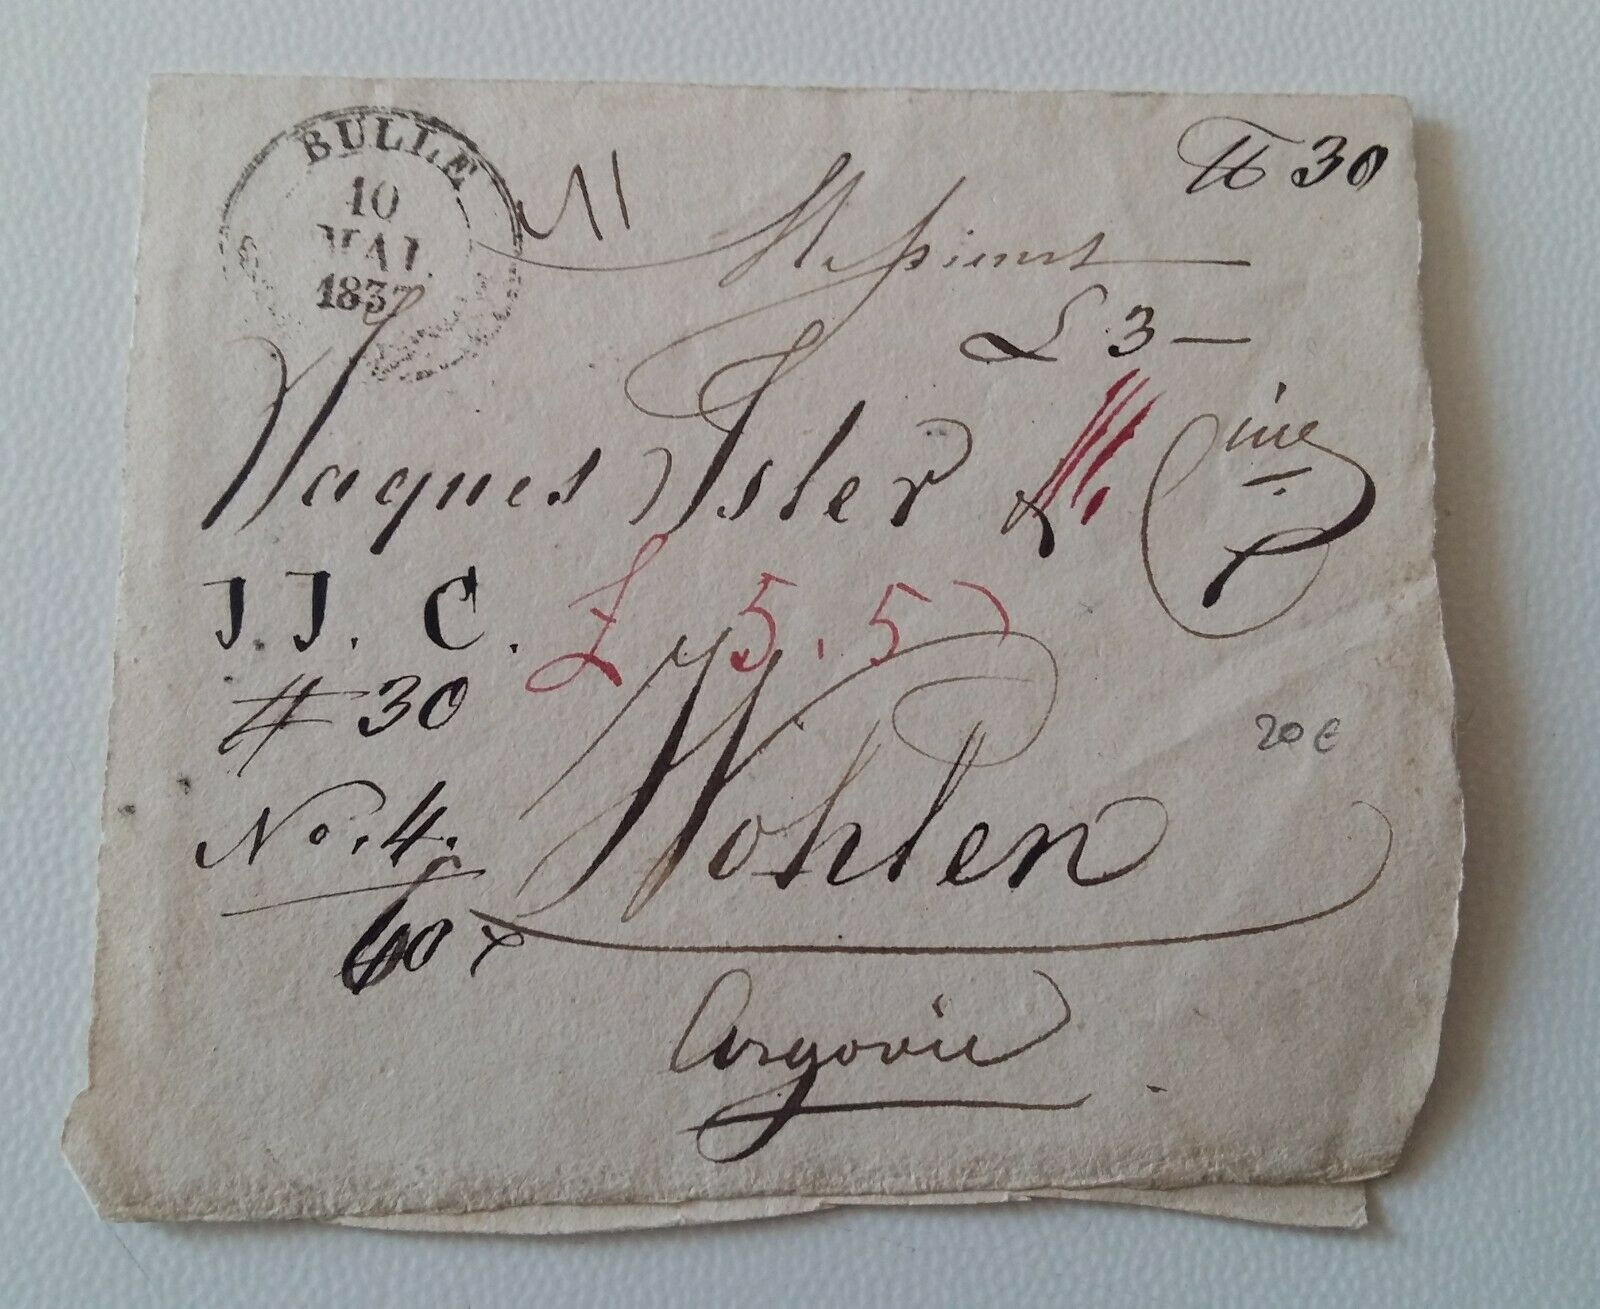 BULLE
10
MAI
1837
℔ 30
Messieurs
L 3 —
Jaques Isler & Cinie
J. J. C.
L 5.5
# 30
Wohlen
20 €
No. 4.
60 x
Argovie